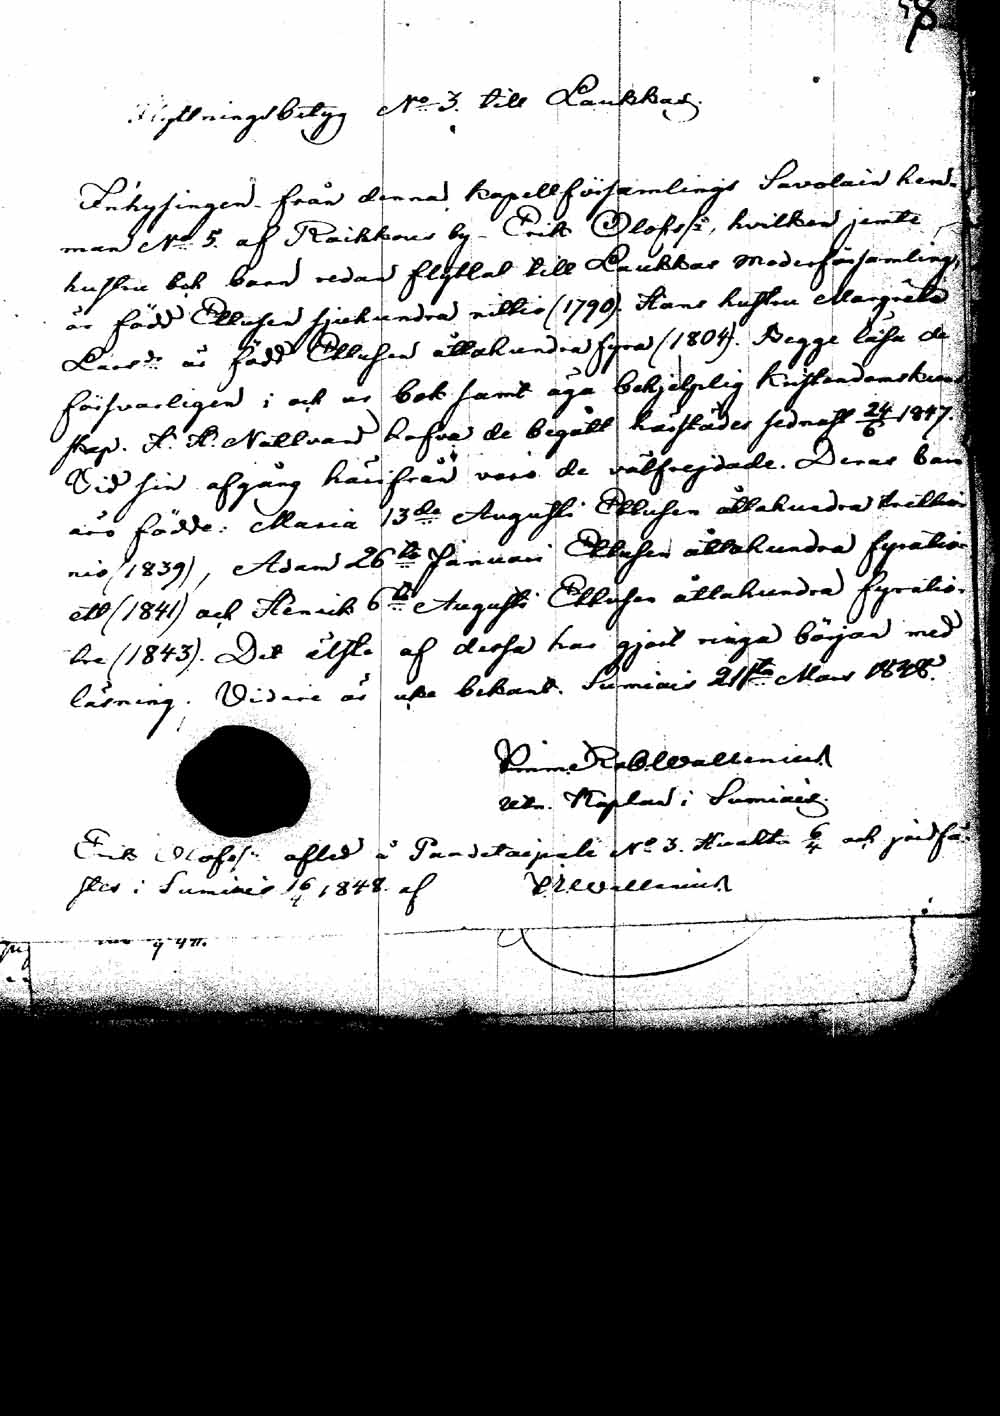 58
Flyttningsbetyg No 3. till Laukkas.
Inhysingen från denna kapellförsamlings Savolain hem-
man No 5. af Raikkous by Erik Olofss:n, hvilken jemte
hustru och barn redan flyttat till Laukkas moderförsamling,
är född Ettusen sjuhundra nittio (1790). Hans hustru Margreta
Larsdr är född Ettusen åttahundra fyra (1804). Begge läsa de
försvarligen i och ur bok samt äga behjelplig kristendomskun-
skap. H. H. Nattvard hafva de begått härstädes sednast 24/6 1847.
Vid sin afgång härifrån voro de välfrejdade. Deras barn
äro födde: Maria 13de Augusti Ettusen åttahundra trettio-
nio (1839), Adam 26te Januari Ettusen åttahundra fyratio-
ett (1841) och Henrik 6te Augusti Ettusen åttahundra fyratio-
tre (1843). Det älsta af dessa har gjort ringa början med
läsning. Vidare är icke bekant. Sumiais 21sta Mars 1848.
Wallenius
Kaplan i Sumiais.
Erik Olofss:n afled å No 3. 6/4 och jordfä-
stes i Sumiais 16/4 1848. af Wallenius